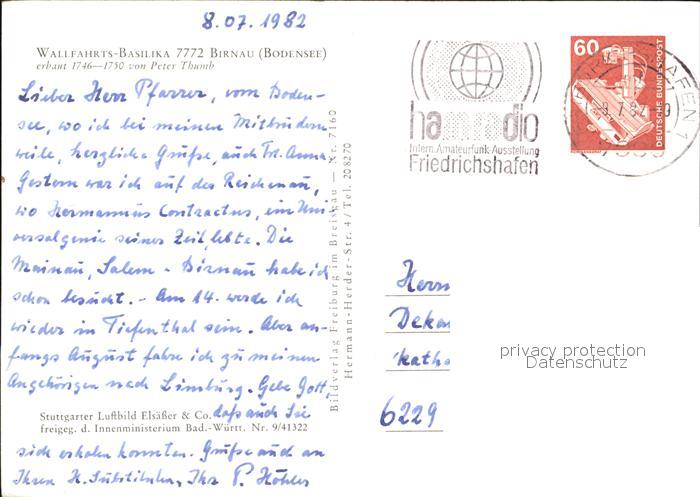 8.07.1982
WALLFAHRTS-BASILIKA 7772 BIRNAU (BODENSEE)
erbaut 1746—1750 von Peter Thumb
Lieber Herr Pfarrer, vom Boden-
see, wo ich bei meinen Mitbrüdern
weile, herzliche Grüße, auch Frl. Anna
Gestern war ich auf des Reichenau,
wo Hermannus Contractus, ein Uni-
versalgenie seiner Zeit, lebte. Die
Mainau, Salem - Birnau habe ich
schon besucht. - Am 14. werde ich
wieder in Tiefenthal sein. Aber an-
fangs August fahre ich zu meinen
Angehörigen nach Limburg. Gebe Gott,
daß auch Sie
Stuttgarter Luftbild Elsäßer & Co.
freigeg. d. Innenministerium Bad.-Württ. Nr. 9/41322
sich erholen konnten. Grüße auch an
Ihren H. Substituten, Ihr P. Köhler
Bildverlag Freiburg im Breisgau — Nr. 7160
Hermann-Herder-Str. 4 / Tel. 208270
ham radio
Intern. Amateurfunk-Ausstellung
Friedrichshafen
60
DEUTSCHE BUNDESPOST
8.7.82
Herrn
Dekan
kath.
6229
privacy protection
Datenschutz